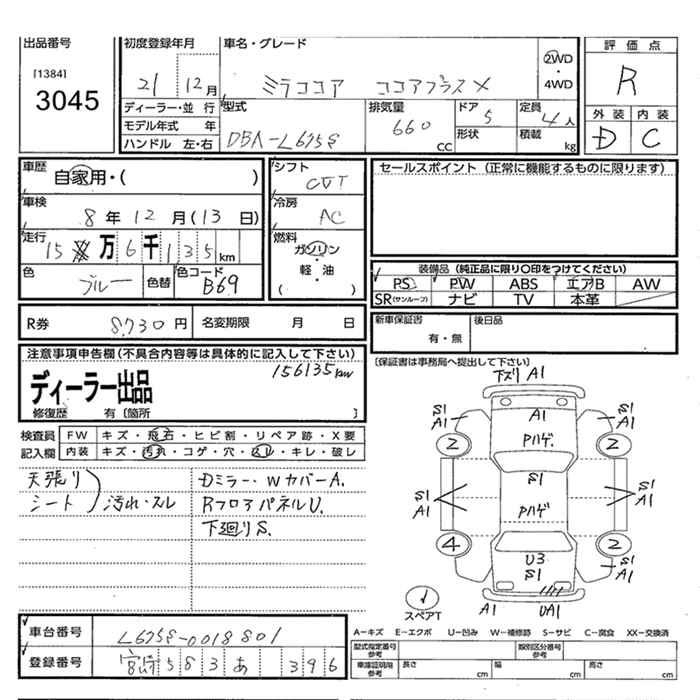 出品番号
[1384]
3045
初度登録年月
21 12月
車名・グレード
ミラココア ココアプラスX
2WD
・
4WD
評価点
R
外装 内装
D C
ディーラー・並行
モデル年式 年
ハンドル 左・右
型式
DBA-L675S
排気量
660
CC
ドア
5
形状
定員
4人
積載
kg
車歴
自家用・( )
車検
8年12月(13日)
走行
15万6千135km
色
ブルー
色替
色コード
B69
シフト
CVT
冷房
AC
燃料
ガソリン
・
軽・油
( )
セールスポイント(正常に機能するものに限ります)
装備品(純正品に限り○印をつけてください)
PS PW ABS エアB AW
SR(サンルーフ) ナビ TV 本革
R券 8,730円 名変期限 月 日
新車保証書
有・無
後日品
[保証書は事務局へ提出して下さい]
注意事項申告欄(不具合内容等は具体的に記入して下さい)
156135km
ディーラー出品
修復歴 有[箇所 ]
検査員 FW キズ・飛石・ヒビ割・リペア跡・X要
記入欄 内装 キズ・汚れ・コゲ・穴・スレ・キレ・破レ
天張り
シート
汚れ・スレ
Dミラー・WカバーA.
RフロアパネルU.
下廻りS.
下ズリA1
A1
Pハゲ.
S1
A1
S1
A1
2
2
S1
S1
A1
S1
A1
Pハゲ
4
2
U3
S1
S1
A1
スペアT
A1
UA1
車台番号 L675S-0018801
登録番号 宮崎583あ396
A-キズ E-エクボ U-凹み W-補修跡 S-サビ C-腐食 XX-交換済
型式指定番号
参考
類別区分番号
参考
車庫証明用
参考
長さ cm 幅 cm 高さ cm